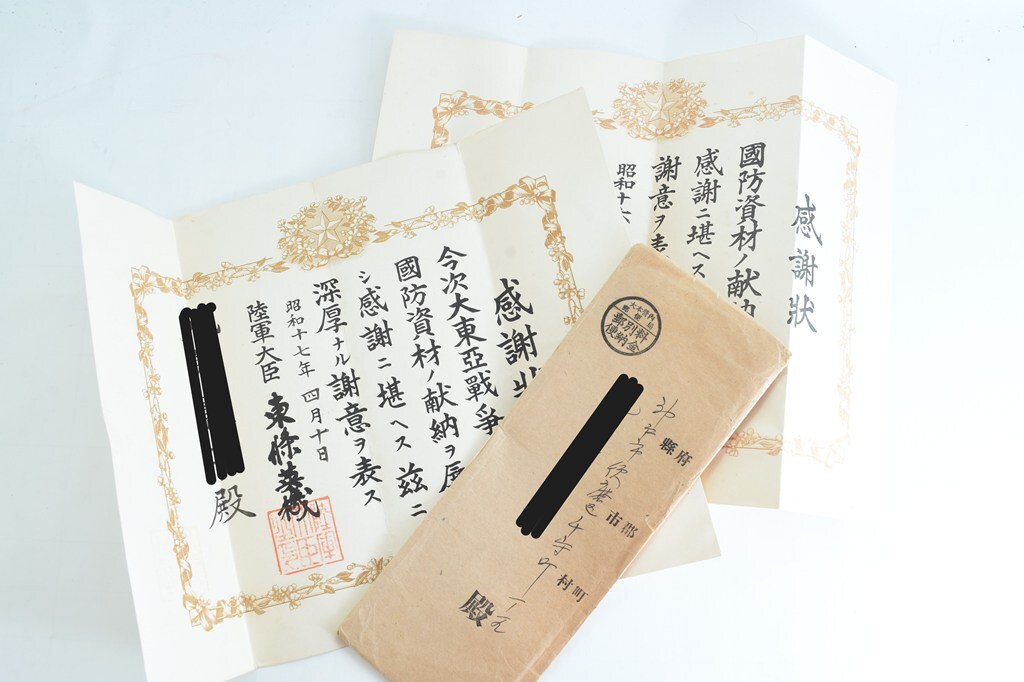 感謝狀
國防資材ノ献納
感謝ニ堪ヘス
謝意ヲ表
昭和十
感謝
今次大東亞戰爭
國防資材ノ献納ヲ
シ感謝ニ堪ヘス茲ニ
深厚ナル謝意ヲ表ス
昭和十七年四月十日
陸軍大臣 東條英機
殿
料金
別納
郵便
府縣
郡市
町村
神戸市須磨区千守町
殿